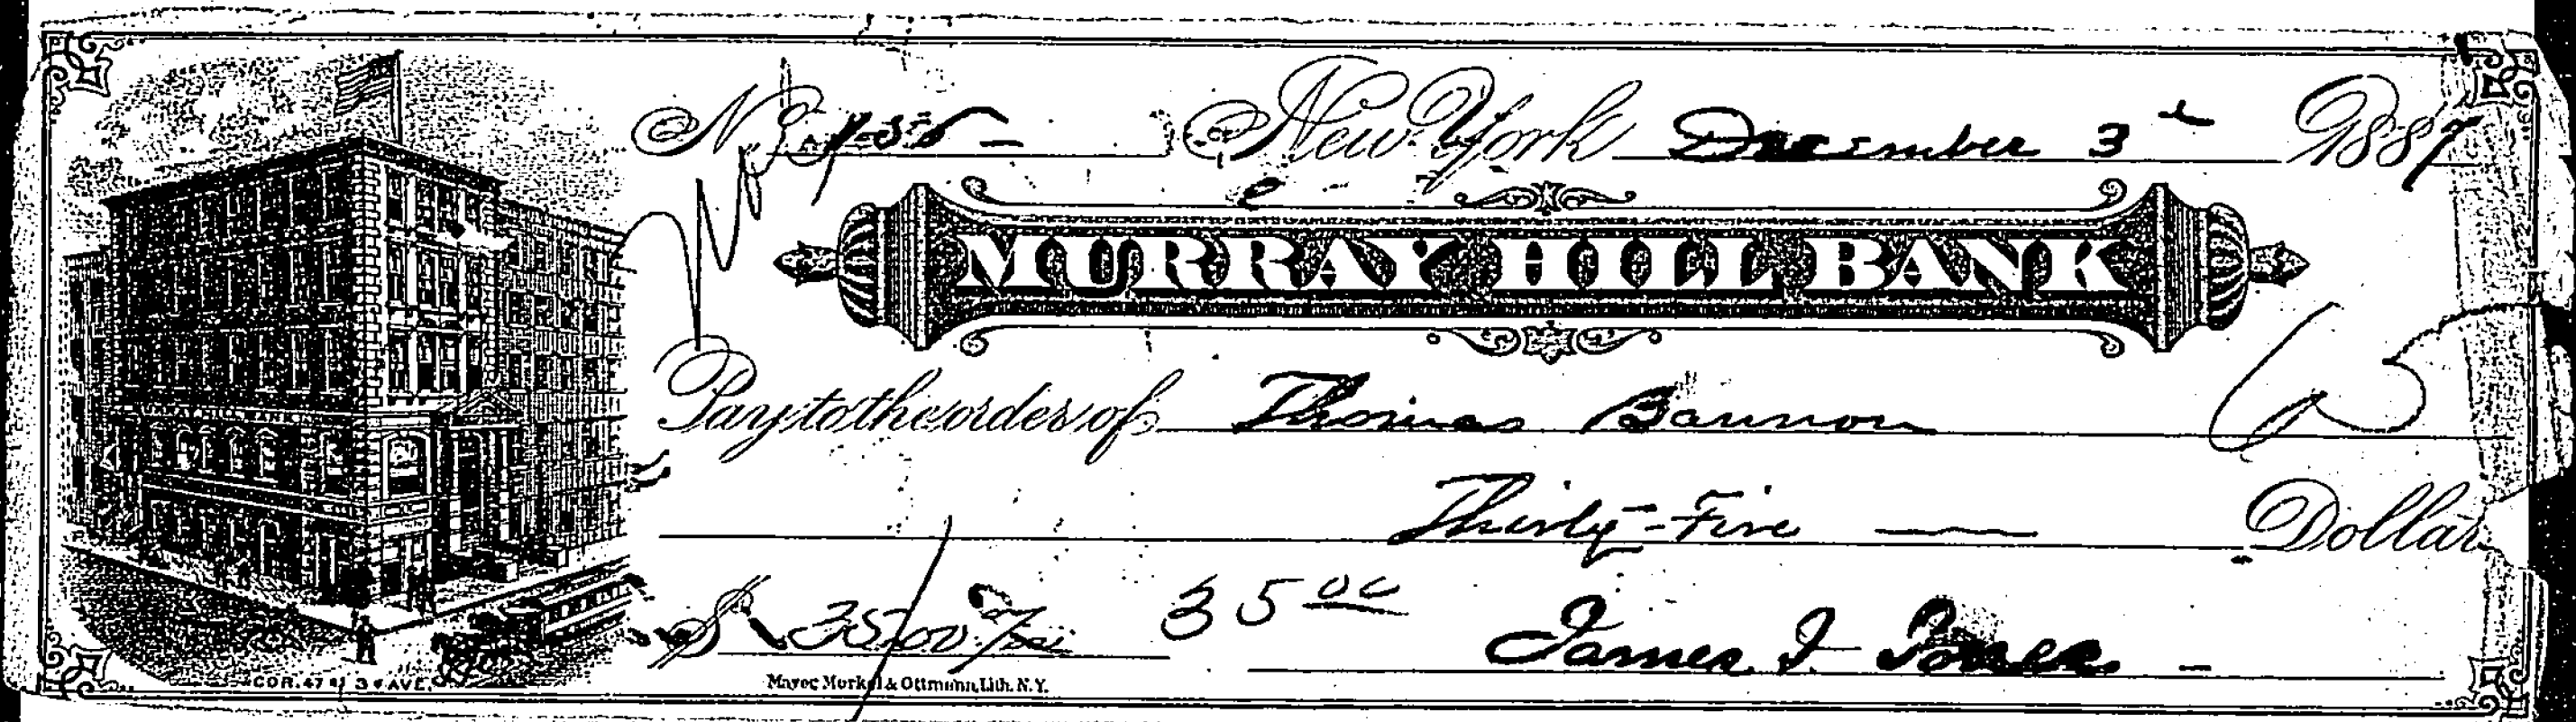 No New York December 3d 1887
MURRAY HILL BANK
Pay to the order of Thomas Bannon
Thirty-Five — Dollar
MURRAY HILL BANK
$ 3500 35 00 James
COR. 47 St 3d AVE.
Mayer, Merkel & Ottmann, Lith. N.Y.